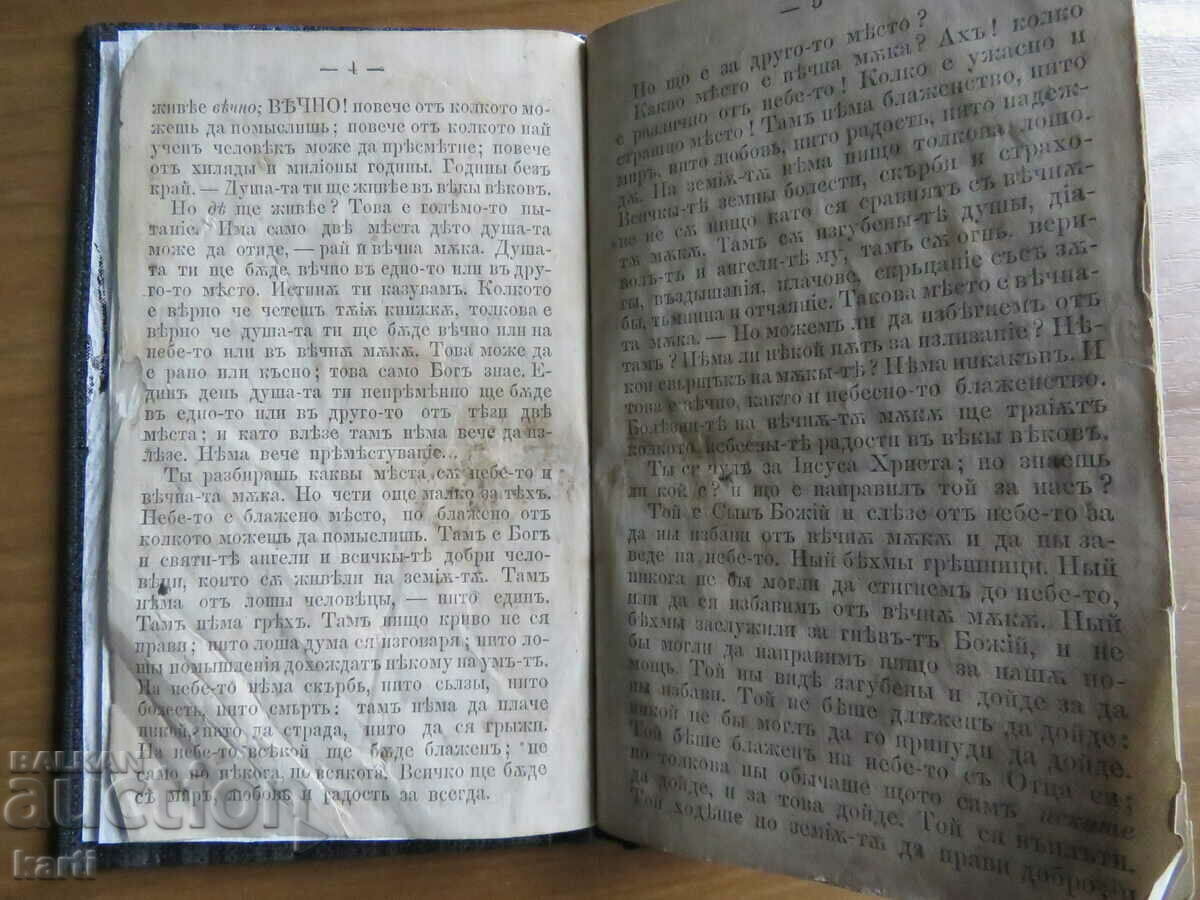 — 4 —
живѣе вѣчно; ВѢЧНО! повече отъ колкото мо-
жешь да помыслишь; повече отъ колкото най
ученъ человѣкъ може да прѣсмѣтне; повече
отъ хиляды и милiоны годины. Годины безъ
край. — Душа-та ти ще живѣе въ вѣкы вѣковъ.
Но дѣ ще живѣе? Това е голѣмо-то пы-
танiе. Има само двѣ мѣста дѣто душа-та
може да отиде, — рай и вѣчна мѫка. Душа-
та ти ще бѫде вѣчно въ едно-то или въ дру-
го-то мѣсто. Истинѫ ти казувамъ. Колкото
е вѣрно че четешъ тѫiѫ книжкѫ, толкова е
вѣрно че душа-та ти ще бѫде вѣчно или на
небе-то или въ вѣчнѫ мѫкѫ. Това може да
е рано или късно; това само Богъ знае. Е-
динъ день душа-та ти непрѣмѣнно ще бѫде
въ едно-то или въ друго-то отъ тѣзи двѣ
мѣста; и като влѣзе тамъ нѣма вече да из-
лѣзе. Нѣма вече прѣмѣстуванiе...
Ты разбирашь каквы мѣста сѫ небе-то и
вѣчна-та мѫка. Но чети още малко за тѣхъ.
Небе-то е блажено мѣсто, по блажено отъ
колкото можешь да помыслишь. Тамъ е Богъ
и святи-тѣ ангели и всичкы-тѣ добри чело-
вѣци, които сѫ живѣли на земiѫ-тѫ. Тамъ
нѣма отъ лошы человѣцы, — нито единъ.
Тамъ нѣма грѣхъ. Тамъ нищо криво не ся
прави; нито лоша дума ся изговаря; нито ло-
шы помышленiя дохождатъ нѣкому на умъ-тъ.
На небе-то нѣма скърбь, нито сьлзы, нито
болесть, нито смърть; тамъ нѣма да плаче
никой, нито да страда, нито да ся грыжи.
На небе-то всѣкой ще бѫде блаженъ; не
само но нѣкога, но всякога. Всичко ще бѫде
съ миръ, любовь и радость за всегда.
— 5
Но що е за друго-то мѣсто?
Какво мѣсто е вѣчна мѫка? Ахъ! колко
е различно отъ небе-то! Колко е ужасно и
страшно мѣсто! Тамъ нѣма блаженство, нито
миръ, нито любовь, нито радость, нито надеж-
дѫ. На земiѫ-тѫ нѣма нищо толкова лошо.
Всичкы-тѣ земны болести, скърби и страхо-
не не сѫ нищо като ся сравнятъ съ вѣчнѫ-
тѫ мѫкѫ. Тамъ сѫ изгубены-тѣ душы, дiа-
волъ-тъ и ангели-тѣ му; тамъ сѫ огнь, вери-
гы, въздышанiя, плачове, скръцанiе съсъ зѫ-
бы, тьмнина и отчаянiе. Такова мѣсто е вѣчна-
та мѫка. — Но можемъ ли да избѣгнемъ отъ
тамъ? Нѣма ли нѣкой пѫть за изливанiе? Нѣ-
кой свършъкъ на мѫкы-тѣ? Нѣма никакъвъ. И
това е вѣчно, както и небесно-то блаженство.
Болѣзни-тѣ на вѣчнѫ-тѫ мѫкѫ ще траiѫтъ
колкото небесны-тѣ радости въ вѣкы вѣковъ.
Ты си чулъ за Iисуса Христа; но знаешь
ли кой е? и що е направилъ той за насъ?
Той е Сынъ Божiй и слѣзе отъ небе-то за
да ны избави отъ вѣчнѫ мѫкѫ и да ны за-
веде на небе-то. Ный бѣхмы грѣшници. Ный
никога не бы могли да стигнемъ до небе-то,
или да ся избавимъ отъ вѣчнѫ мѫкѫ. Ный
бѣхмы заслужили за гнѣвъ-тъ Божiй, и не
бы могли да направимъ нищо за нашѫ по-
мощь. Той ны видѣ загубены и дойде за да
ны избави. Той не бѣше длъженъ да дойде:
никой не бы моглъ да го принуди да дойде.
Той бѣше блаженъ на небе-то съ Отца си;
но толкова ны обычаше щото самъ искаше
да дойде, и за това дойде. Той ся въплъти.
Той ходѣше по земiѫ-тѫ да прави
BALKAN
auction
karti